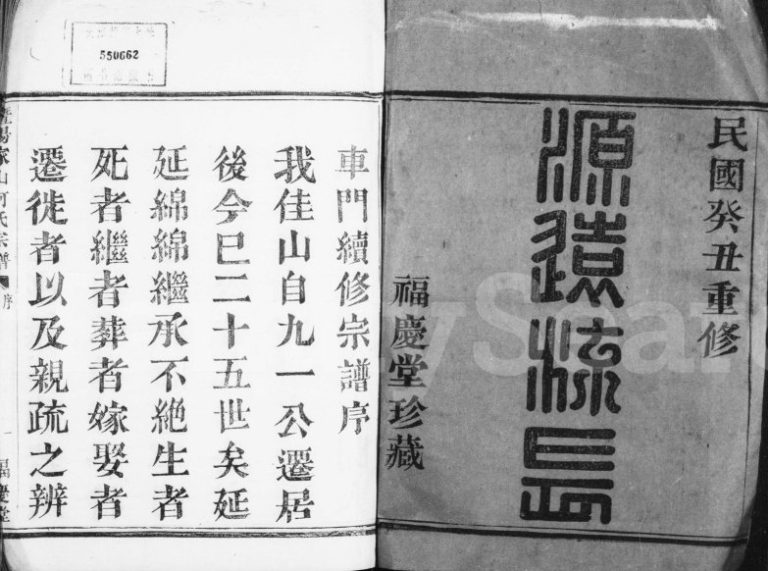 民國癸丑重修
源遠流長
福慶堂珍藏
車門續修宗譜序
我佳山自九一公遷居
後今巳二十五世矣延
延綿綿繼承不絶生者
死者繼者葬者嫁娶者
遷徙者以及親疏之辨
佳山何氏宗譜
序
一
福慶堂
550662